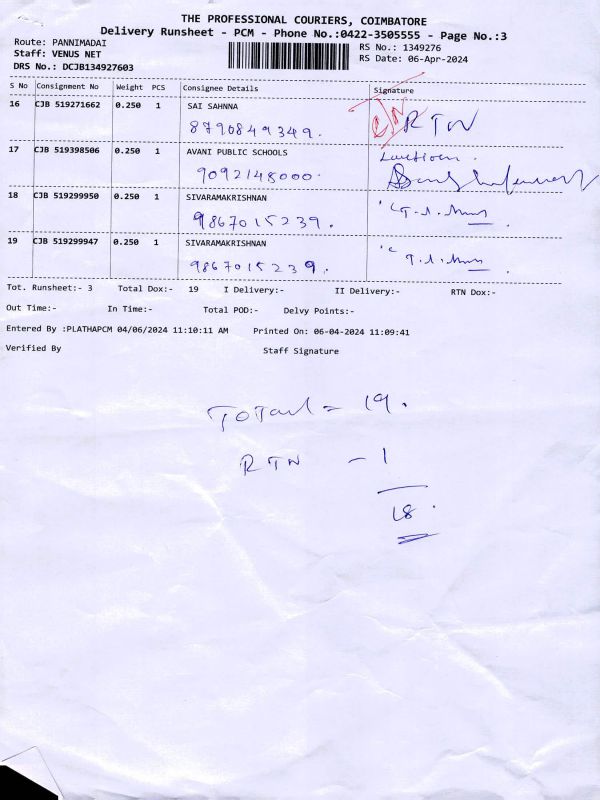 THE PROFESSIONAL COURIERS, COIMBATORE
Delivery Runsheet - PCM - Phone No.:0422-3505555 - Page No.:3
Route: PANNIMADAI
Staff: VENUS NET
DRS No.: DCJB134927603
RS No.: 1349276
RS Date: 06-Apr-2024
S No Consignment No Weight PCS Consignee Details Signature
16 CJB 519271662 0.250 1 SAI SAHNNA
8790849349. RTN
17 CJB 519398506 0.250 1 AVANI PUBLIC SCHOOLS
9092148000.
18 CJB 519299950 0.250 1 SIVARAMAKRISHNAN
9867015239.
19 CJB 519299947 0.250 1 SIVARAMAKRISHNAN
9867015239.
Tot. Runsheet:- 3 Total Dox:- 19 I Delivery:- II Delivery:- RTN Dox:-
Out Time:- In Time:- Total POD:- Delvy Points:-
Entered By :PLATHAPCM 04/06/2024 11:10:11 AM Printed On: 06-04-2024 11:09:41
Verified By Staff Signature
Total = 19.
RTN - 1
18.